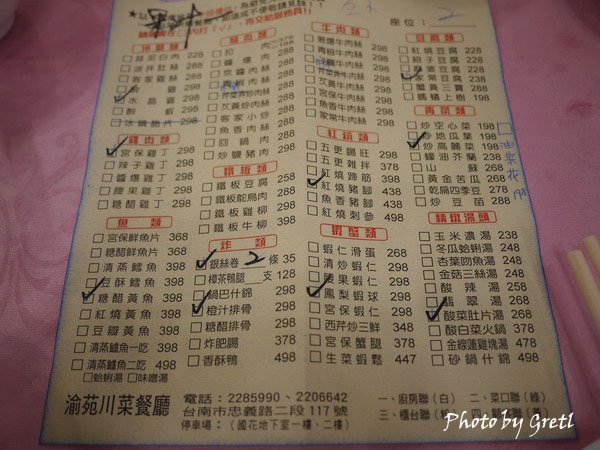 果汁
座位：2
請
冷盤類
蒜泥白肉 228
涼拌肚絲 288
客家雞絲
水晶雞 298
醉雞 298
冰鎮魚片
雞肉類
宮保雞丁 298
辣子雞丁 298
醬爆雞丁 298
腰果雞丁 298
糖醋雞丁 298
魚類
宮保鮮魚片 368
糖醋鮮魚片 368
清蒸鱈魚 358
豆酥鱈魚 358
糖醋黃魚 298
紅燒黃魚 298
豆瓣黃魚 298
清蒸鱸魚一吃 398
清蒸鱸魚二吃 498
蛤蜊湯 味噌湯
豬肉類
扣肉
醬爆肉
京醬肉絲
青椒肉絲
芹菜炒肉絲
芡黃炒肉絲
客家小炒
魚香肉絲
回鍋肉
炒鹽豬肉
鐵板類
鐵板豆腐 258
鐵板鴕鳥肉 288
鐵板雞柳 298
鐵板牛柳 298
炸類
銀絲卷 2條 35
樟茶鴨腿 支 128
鍋巴什錦 298
橙汁排骨 298
糖醋排骨 298
炸肥腸 378
香酥鴨 498
牛肉類
蔥爆牛肉絲
芡黃牛肉絲
宮保牛肉絲
青椒牛肉絲
家常牛肉絲
紅燒類
五更腸旺 298
五更雜拌 378
紅燒蹄筋 398
紅燒豬腳 438
魚香豬腳 438
紅燒刺參 498
蝦蟹類
蝦仁滑蛋 268
清炒蝦仁 298
腰果蝦仁 298
鳳梨蝦球 298
宮保蝦仁 298
西芹炒三鮮 348
宮保蟹腿 378
生菜蝦鬆 447
豆腐類
紅燒豆腐 228
紹子豆腐 228
麻婆豆腐 228
家常豆腐 228
蟹黃三寶 288
螞蟻上樹 198
青菜類
炒空心菜 198
炒地瓜葉 198
炒高麗菜 198
蠔油芥蘭 238
山蘇 268
黃金苦瓜 268
乾扁四季豆 278
炒豆苗 288
油菜花 198
精緻湯頭
玉米濃湯 238
冬瓜蛤蜊湯 248
杏葉吻魚湯 248
金菇三絲湯 248
酸辣湯 258
翡翠湯 268
酸菜肚片湯 268
酸白菜火鍋 378
金線蓮雞塊湯 478
砂鍋什錦 498
渝苑川菜餐廳
電話：2285990、2206642
台南市忠義路二段117號
停車場：（國花地下室一樓、二樓）
一、廚房聯（白） 二、菜口聯（綠）
三、櫃台聯（粉）
Photo by Gretl